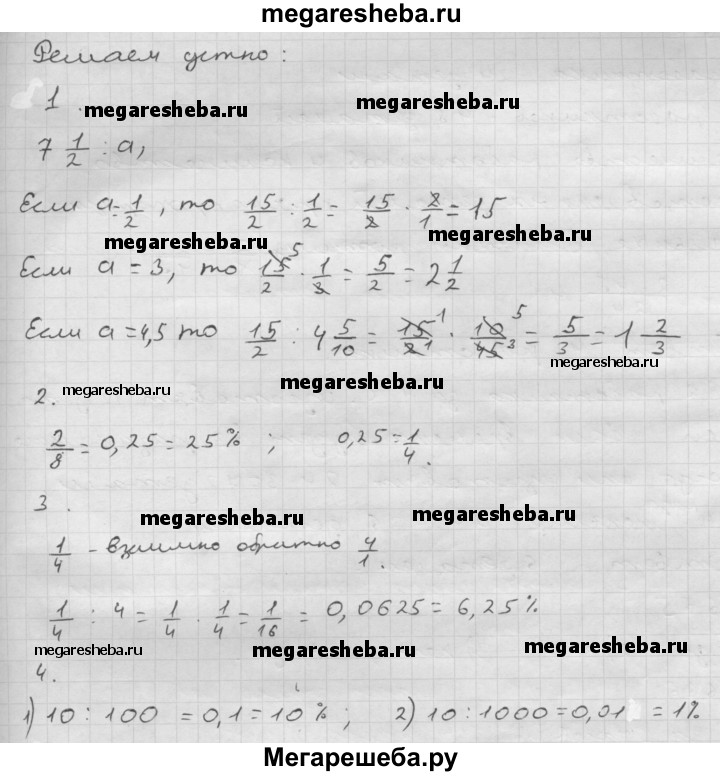 megaresheba.ru
Решаем устно:
1.
megaresheba.ru megaresheba.ru
7 1/2 : a,
Если a = 1/2, то 15/2 : 1/2 = 15/2 · 2/1 = 15
megaresheba.ru megaresheba.ru
Если a = 3, то 15/2 · 1/3 = 5/2 = 2 1/2
Если a = 4,5 то 15/2 : 4 5/10 = 15/2 · 10/45 = 5/3 = 1 2/3
megaresheba.ru
megaresheba.ru megaresheba.ru
2.
2/8 = 0,25 = 25% ; 0,25 = 1/4.
3.
megaresheba.ru megaresheba.ru
1/4 - взаимно обратно 4/1.
1/4 : 4 = 1/4 · 1/4 = 1/16 = 0,0625 = 6,25%
megaresheba.ru megaresheba.ru megaresheba.ru
4.
1) 10 : 100 = 0,1 = 10% ; 2) 10 : 1000 = 0,01 = 1%
Мегарешеба.ру